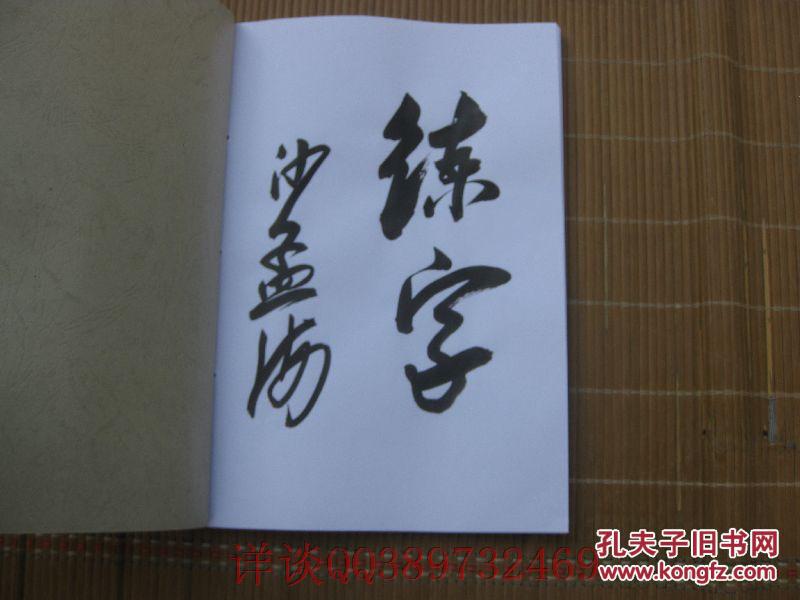 练字
沙孟海
详谈QQ389732469
孔夫子旧书网
www.kongfz.com